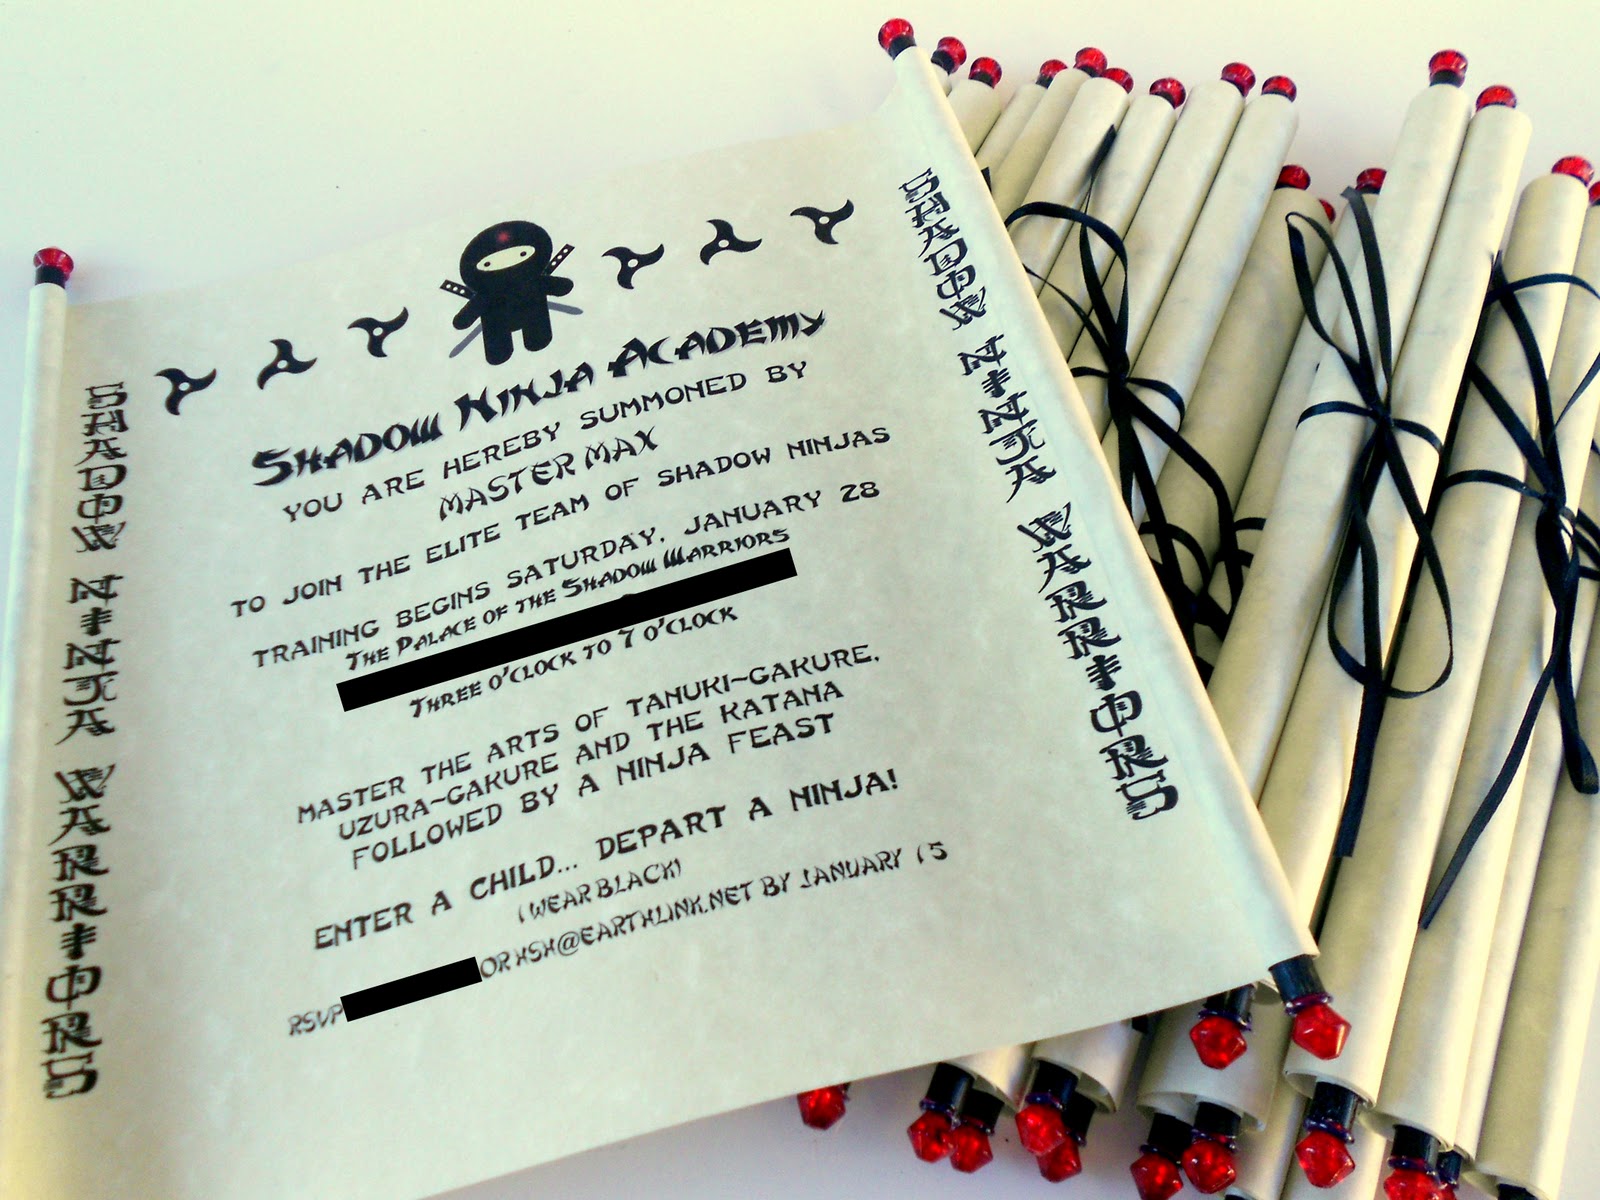 SHADOW NINJA WARRIORS
SHADOW NINJA ACADEMY
YOU ARE HEREBY SUMMONED BY
MASTER MAX
TO JOIN THE ELITE TEAM OF SHADOW NINJAS
TRAINING BEGINS SATURDAY, JANUARY 28
THE PALACE OF THE SHADOW WARRIORS
THREE O'CLOCK TO 7 O'CLOCK
MASTER THE ARTS OF TANUKI-GAKURE,
UZURA-GAKURE AND THE KATANA
FOLLOWED BY A NINJA FEAST
ENTER A CHILD... DEPART A NINJA!
(WEAR BLACK)
RSVP OR HSH@EARTHLINK.NET BY JANUARY 15
SHADOW NINJA WARRIORS